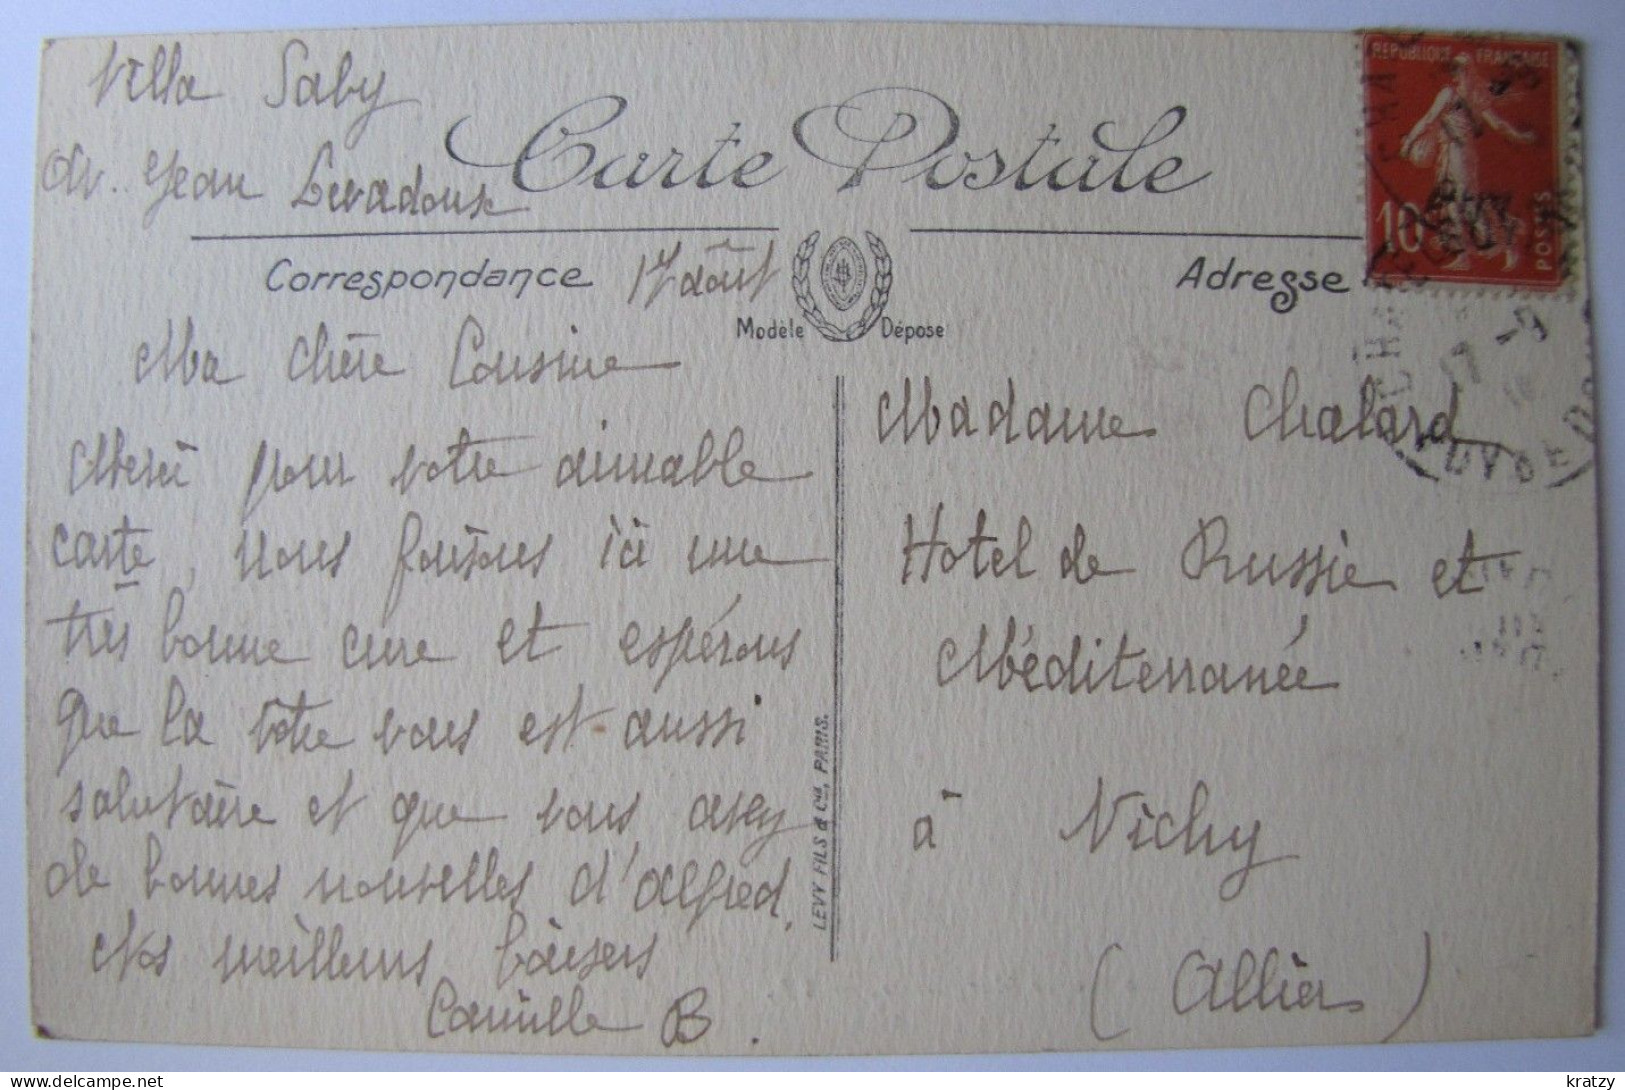 Villa Saby
av. Jean Levadoux
Carte Postale
REPUBLIQUE FRANÇAISE
10
POSTES
Correspondance
17 août
Adresse
Modèle Déposé
Ma chère Cousine
Merci pour votre aimable
carte, nous faisons ici une
très bonne cure et espérons
que la vôtre vous est aussi
salutaire et que vous avez
de bonnes nouvelles d'Alfred.
Nos meilleurs baisers
Camille B.
LEVY FILS & Cie, PARIS.
Madame Chalard
Hotel de Russie et
Méditerranée
à Vichy
(Allier)
PUY DE DO
kratzy